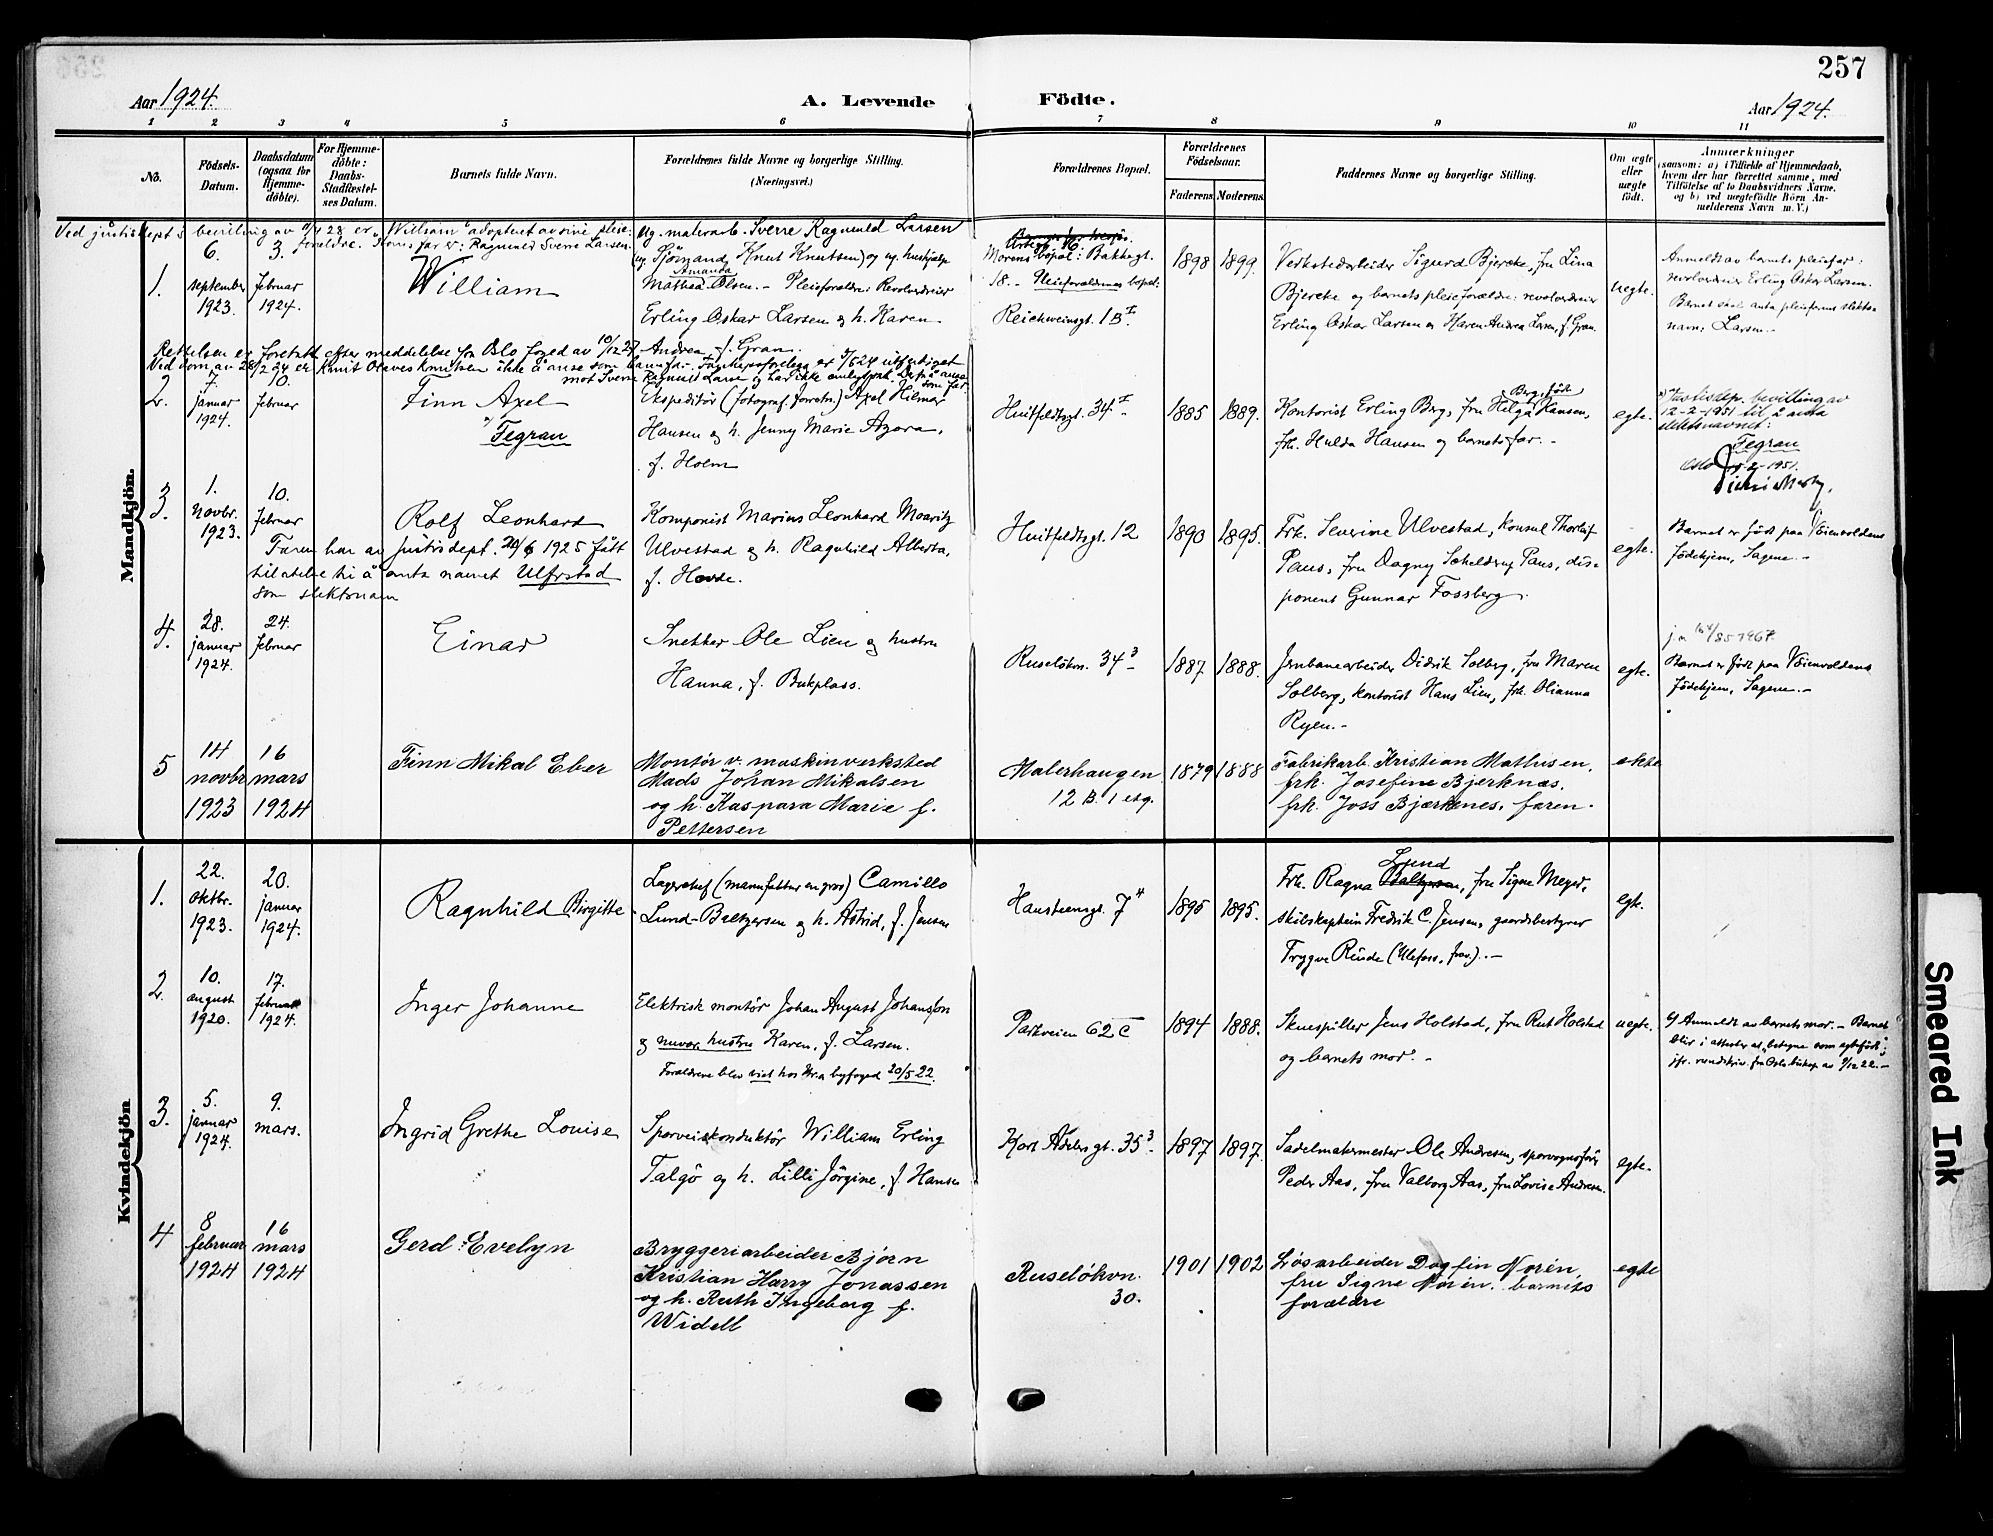 257
Aar 1924.
A. Levende Födte.
Aar 1924.
1 2 3 4 5 6 7 8 9 10 11
No.
Födsels-Datum.
Daabsdatum (ogsaa for Hjemme-döbte).
For Hjemme-döbte: Daabs-Stadfæstel-ses Datum.
Barnets fulde Navn.
Forældrenes fulde Navne og borgerlige Stilling.
(Næringsvei.)
Forældrenes Bopæl.
Forældrenes Födselsaar.
Faderens Moderens
Faddernes Navne og borgerlige Stilling.
Om ægte eller uægte födt.
Anmærkninger
(saasom: a) i Tilfælde af Hjemmedaab, hvem der har forrettet samme, med Tilföielse af to Daabsvidners Navne, og b) ved uægtefödte Börn An-melderens Navn m. V.)
Mandkjön.
Ved justisdept's bevilling av 28 er "William" adoptert av sine pleie-
foreldre. Barnets far er: Ragnvald Sverre Larsen.
1.
6. september 1923.
3. februar 1924.
William
Ug. malerarb. Sverre Ragnvald Larsen
(ug. Sjømand Knut Knutsen) og ug. hushjælp
Mathea Amanda Olsen. - Pleieforældre: Revolverdreier
Erling Oskar Larsen og h. Karen
Andrea, f. Gran.
Morens bopæl: Bakkegt.
18. - Pleieforældrenes bopæl:
Reichweinsgt. 1B I.
1898 1899.
Verkstedarbeider Sigurd Bjercke, fru Lina
Bjercke og barnets pleieforældre: revolverdreier
Erling Oskar Larsen og Karen Andrea Larsen, f. Gran.
uegte.
Anmeldt av barnets pleiefar:
revolverdreier Erling Oskar Larsen.
Barnet skal anta pleiefarens slekts-
navn: Larsen.
Rettelsen er foretatt efter meddelelse fra Oslo foged av 10/12 27.
Ved dom av 28/2 24 er Knut Olaves Knutsen ikke å anse som barnefar. Farskapsforelegg er 7/6 24 utferdiget
mot Sverre Ragnvald Larsen og har ikke anlagt sak. Derfor å anse
som far.
2.
7. januar 1924.
10. februar
Finn Axel
x) Tegran
Ekspeditør (fotograf. forretn.) Axel Hilmar
Hansen og h. Jenny Marie Azora,
f. Holm
Huitfeldtsgt. 34 I
1885 1889.
Kontorist Erling Berg, fru Helga Berg født Hansen,
frk. Hulda Hansen og barnets far. -
egte.
x) Justisdep. bevilling av
12-2-1951 til å anta
slektsnavnet:
Tegran
Oslo -2-1951.
3.
1. novbr. 1923.
10. februar
Rolf Leonhard
Faren har av Justisdept. 20/6 1925 fått
tilatelse til å anta navnet Ulfrstad
som slektsnavn
Komponist Marius Leonhard Moaritz
Ulvestad og h. Ragnhild Alberta,
f. Hovde.
Huitfeldtsgt. 12
1890 1895.
Frk. Severine Ulvestad, konsul Thorleif
Paus, fru Dagny Schelderup Paus, dis-
ponent Gunnar Fossberg.
egte.
Barnet er født paa Vøienvoldens
fødehjem, Sagene. -
4.
28. januar 1924.
24. februar
Einar
Snekker Ole Lien og hustru
Hanna, f. Bukplass.
Ruseløkvn. 34 3
1887 1888.
Jernbanearbeider Didrik Solberg, fru Maren
Solberg, kontorist Hans Lien, frk. Olianna
Ryen. -
egte.
Barnet er født paa Vöienvoldens
fødehjem, Sagene. -
5
14 novbr 1923
16 mars 1924
Finn Mikal Eber
Montør v. maskinverksted
Mads Johan Mikalsen
og h. Kaspara Marie f.
Pettersen
Malerhaugen
12 B. 1 etg.
1879 1888
Fabrikarb. Kristian Mathisen,
frk. Josefine Bjerknæs,
frk. Joss Bjærknes, faren.
ekte
Kvindekjön
1.
22. oktbr. 1923.
20. januar 1924.
Ragnhild Birgitte
Lagerchef (manufaktur en gros) Camillo
Lund-Baltzersen og h. Astrid, f. Jensen
Hansteensgt. 7 II
1895 1895.
Frk. Ragna Lund, fru Signe Meyer,
skibskaptein Fredrik C. Jensen, gaardsbestyrer
Trygve Rinde (Ulefoss, frav.). -
egte.
2.
10. august 1920.
17. februar 1924.
Inger Johanne
Elektrisk montør Johan August Johansson
og nuvær. hustru Karen, f. Larsen.
Forældrene blev viet hos Kr.a byfoged 20/5 22.
Parkveien 62 C
1894 1888.
Skuespiller Jens Holstad, fru Rut Holstad
og barnets mor. -
uegte.
Anmeldt av barnets mor. - Barnet
blir i attester at betegne som "egtefødt",
jfr. rundskriv. fra Oslo biskop av 9/12 22. -
3.
5. januar 1924.
9. mars.
Ingrid Grethe Louise
Sporveiskonduktør William Erling
Talgö og h. Lilli Jörgine, f. Hansen
Kort Adelersgt. 35 3
1897 1897.
Sadelmakermester Ole Andresen, sporvognsfører
Peder Aas, fru Valborg Aas, fru Lovise Andresen.
egte.
4
8 februar 1924
16 mars 1924
Gerd Evelyn
Bryggeriarbeider Bjørn
Kristian Harry Jonassen
og h. Ruth Ingeborg f.
Widell
Ruseløkvn.
30.
1901 1902
Løsarbeider Dagfin Norén
fru Signe Norén. barnets
forældre
egte
Smeared Ink